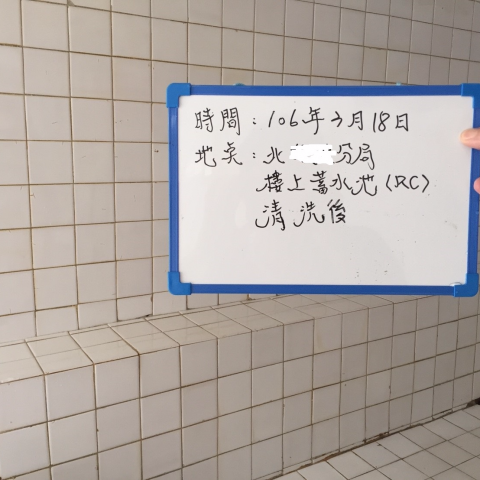 時間:106年3月18日
地点:北 分局
樓上蓄水池(RC)
清洗後